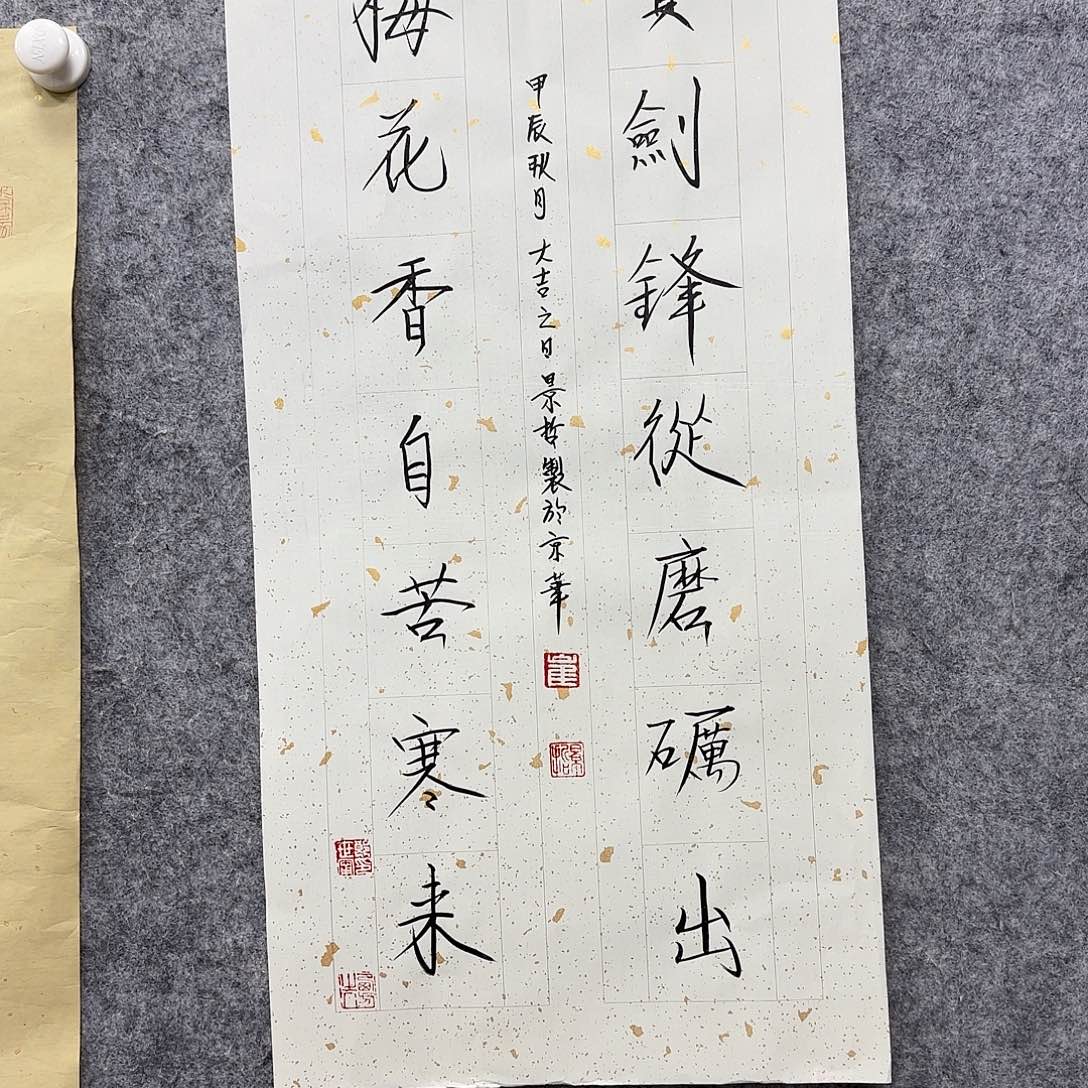 寶劍鋒從磨礪出
甲辰秋月 大吉之日景哲製於京華
梅花香自苦寒来